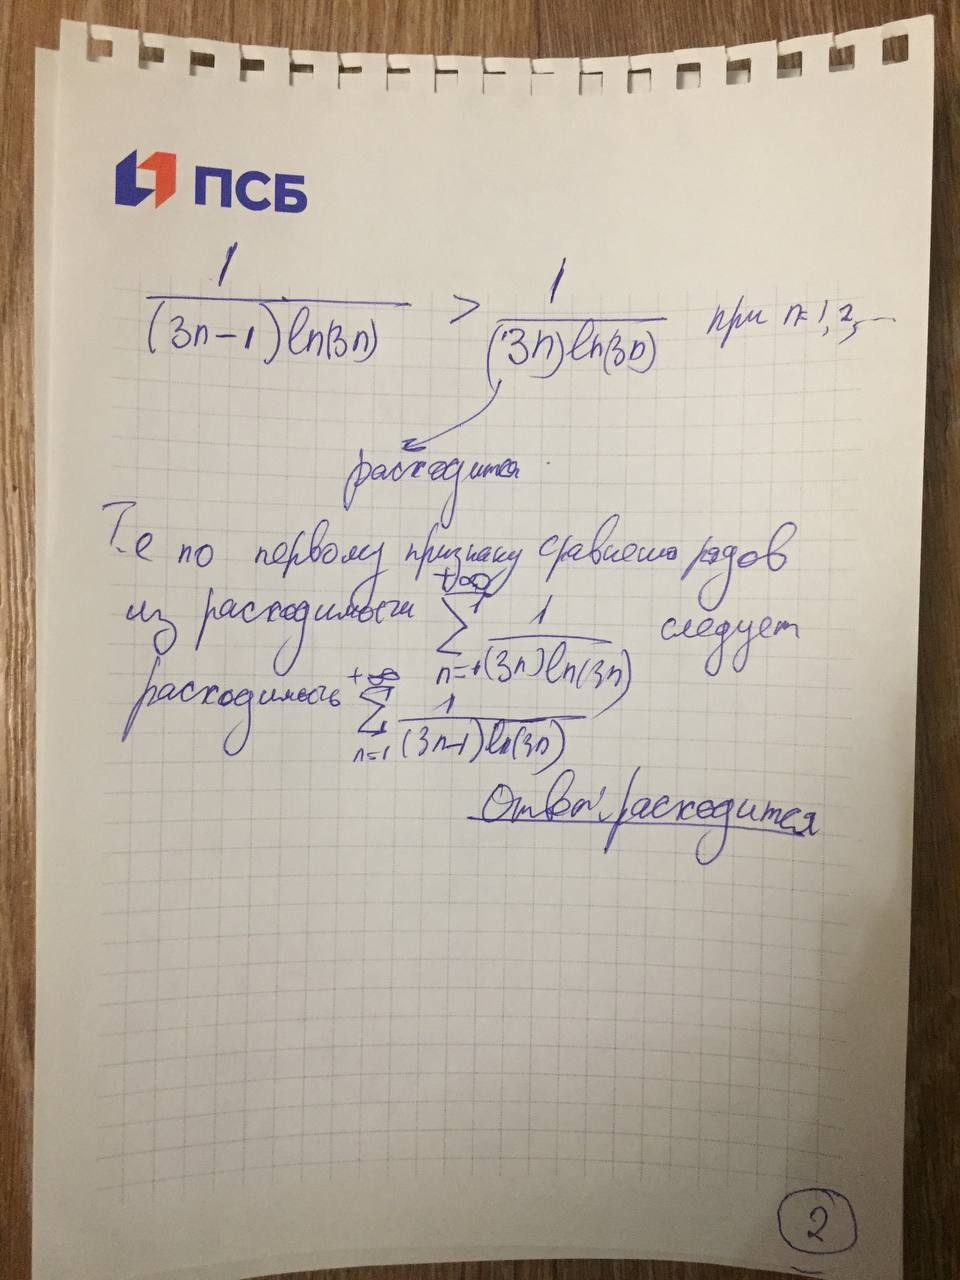 ПСБ
1 / (3n-1)ln(3n) > 1 / (3n)ln(3n) при n=1,2,...
расходится
Т.е по первому признаку сравнения рядов
из расходимости +∞ ∑ n=1 1 / (3n)ln(3n) следует
расходимость +∞ ∑ n=1 1 / (3n-1)ln(3n)
Ответ: расходится
2